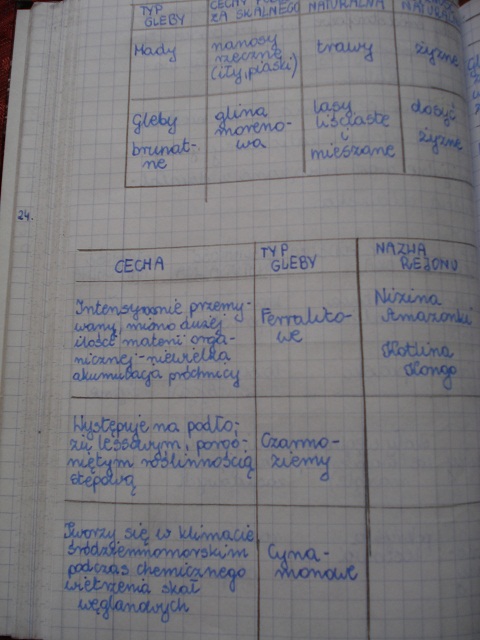 TYP GLEBY
CECHY
ZA SKALNEGO
NATURALNA
Mady
nanosy
rzeczne
(iły, piaski)
trawy
żyzne
Gleby
brunat-
ne
glina
moreno-
wa
lasy
liściaste
i
mieszane
dosyć
żyzne
24.
CECHA
TYP
GLEBY
NAZWA
REJONU
Intensywnie przemy-
wany, mimo dużej
ilości materii orga-
nicznej - niewielka
akumulacja próchnicy
Ferralito-
we
Nizina
Amazonki
Kotlina
Kongo
Występuje na podło-
żu lessowym, poroś-
niętym roślinnością
stepową
Czarno-
ziemy
Tworzy się w klimacie
śródziemnomorskim
podczas chemicznego
wietrzenia skał
węglanowych
Cyna-
monowe